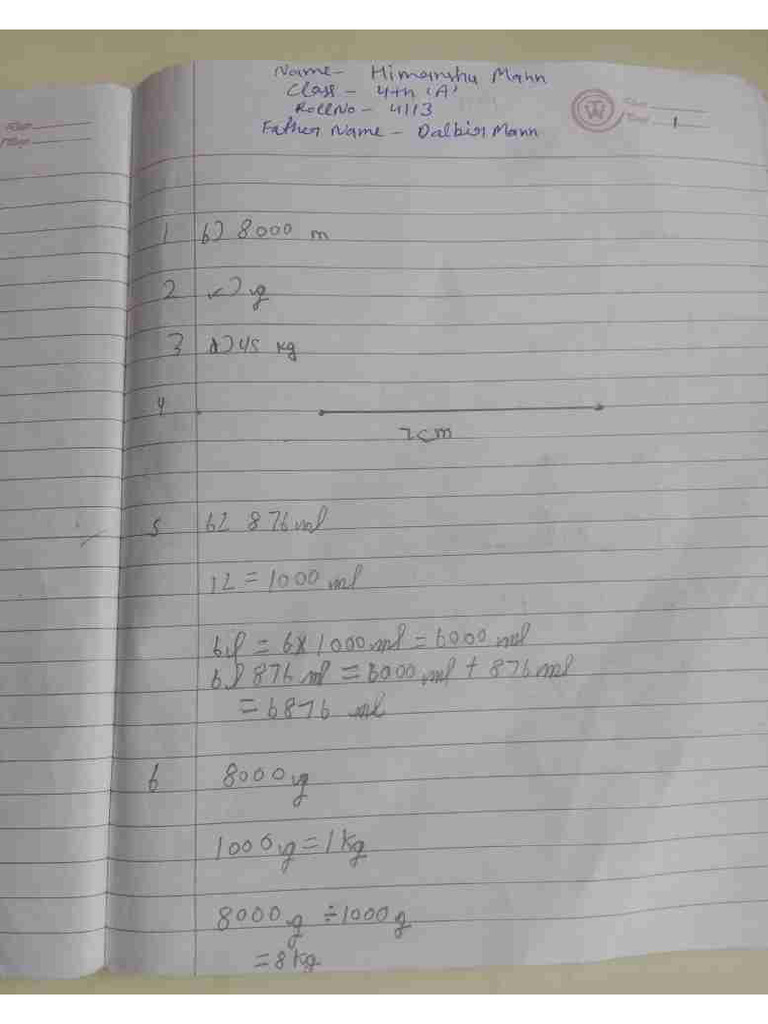 Name- Himanshu Mann
Class - 4th 'A'
Roll No - 4113
Father Name - Dalbir Mann
1
1 b) 8000 m
2 c) g
3 d) 45 kg
4
7cm
5 6L 876 ml
1L = 1000 ml
6l = 6x1000ml = 6000 ml
6l 876 ml = 6000 ml + 876 ml
= 6876 ml
6 8000 g
1000g = 1kg
8000g ÷ 1000g
= 8 kg